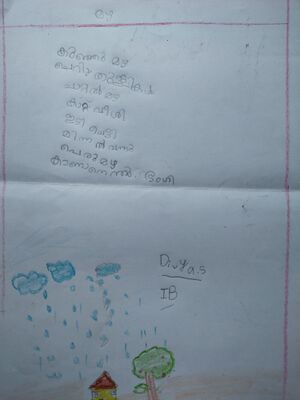 മഴ
കുഞ്ഞൻ മഴ
ചെറിയ തുള്ളികൾ
ചാറ്റൽ മഴ
കാറ്റ് വീശി
ഇടി വെട്ടി
മിന്നൽ വന്നു
പെരുമഴ
കാണാനെന്ത് ഭംഗി
Divya.S
IB